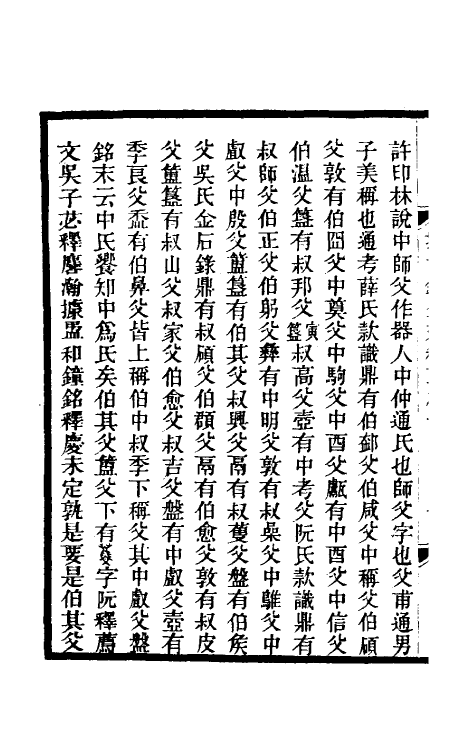 許印林說中師父作器人中仲通氏也師父字也父甫通男
子美稱也通考薛氏款識鼎有伯郄父伯咸父中稱父伯頎
父敦有伯囧父中奠父中駒父中酉父甗有中酉父中信父
伯溫父簋有叔邦父寅簋叔高父壺有中考父阮氏款識鼎有
叔師父伯正父伯躬父彝有中明父敦有叔喿父中雝父中
戲父中殷父簠簋有伯其父叔興父鬲有叔蒦父盤有伯矦
父吳氏金石錄鼎有叔頎父伯顜父鬲有伯愈父敦有叔皮
父簠簋有叔山父叔家父伯愈父叔吉父盤有中戲父壺有
季良父盉有伯鼻父皆上稱伯中叔季下稱父其中戲父盤
銘末云中氏饔知中爲氏矣伯其父簠父下有字阮釋麐
文吳子苾釋麐瀚據盄和鐘銘釋慶未定孰是要是伯其父